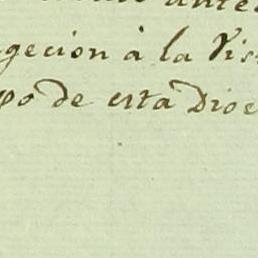 ante
gecion à la Vis
po de esta Dioce